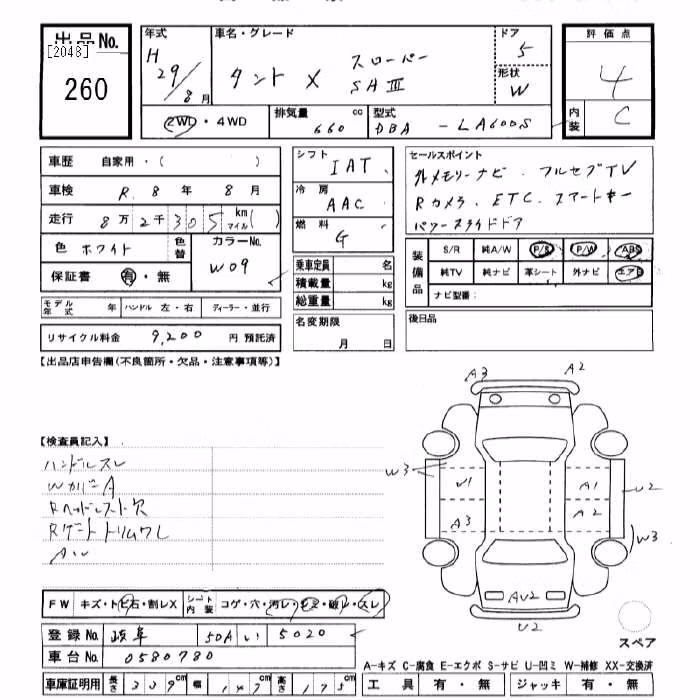 出品No.
[2048]
260
年式
H
29/8月
車名・グレード
タント X スローパー
SAⅢ
ドア
5
形状
W
評価点
4
内装
C
2WD・4WD
排気量
660 cc
型式
DBA - LA600S
車歴 自家用・( )
車検 R. 8 年 8 月
走行 8万2千305 km マイル( )
色 ホワイト
色替
カラーNo.
W09
保証書 有・無
モデル年式 年 ハンドル 左・右 ディーラー・並行
リサイクル料金 9,200 円 預託済
シフト
IAT
冷房
AAC
燃料
G
乗車定員 名
積載量 kg
総重量 kg
名変期限
月 日
セールスポイント
外メモリーナビ. フルセグTV
Rカメラ. ETC. スマートキー
パワースライドドア
装備品
S/R 純A/W P/S P/W ABS
純TV 純ナビ 革シート 外ナビ エアB
ナビ型番:
後日品
【出品店申告欄(不良箇所・欠品・注意事項等)】
【検査員記入】
ハンドルスレ
WカバーA
Rヘッドレスト欠
Rゲートトリムワレ
AW
A3 A2
W3 U1 A1 U2
A3 A2 W3
AU2
U2
スペア
FW キズ・トビ石・割レX
シート内装 コゲ・穴・汚レ・シミ・破レ・スレ
登録No. 岐阜 50A い 5020
車台No. 0580780
車庫証明用 長さ 339cm 幅 147cm 高さ 175cm
A-キズ C-腐食 E-エクボ S-サビ U-凹ミ W-補修 XX-交換済
工具 有・無 ジャッキ 有・無